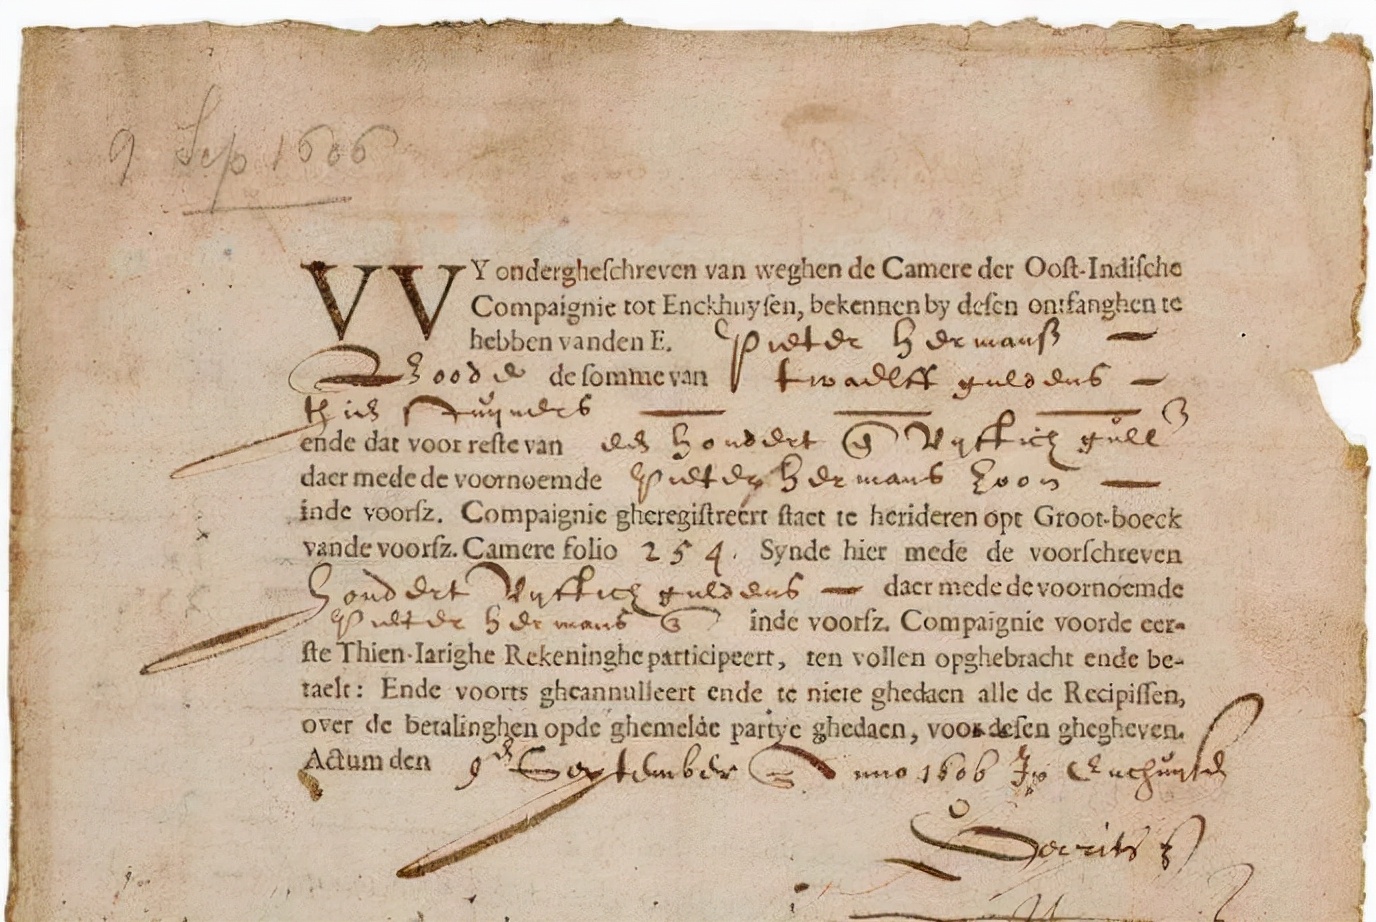 9 Sep 1606
VVY ondergheschreven van weghen de Camere der Oost-Indische
Compaignie tot Enckhuysen, bekennen by desen ontfanghen te
hebben vanden E. Pieter Hermansz —
de somme van twaelff guldens —
ende dat voor reste van een hondert Vyftich gull
daer mede de voornoemde Pieter Hermans zoon —
inde voorsz. Compaignie gheregistreert staet te herideren opt Groot-boeck
vande voorsz. Camere folio 254. Synde hier mede de voorschreven
hondert Vyftich guldens — daer mede de voornoemde
Pieter Hermans inde voorsz. Compaignie voorde eer-
ste Thien-Iarighe Rekeninghe participeert, ten vollen opghebracht ende be-
taelt: Ende voorts gheannulleert ende te niete ghedaen alle de Recipissen,
over de betalinghen opde ghemelde partye ghedaen, voor desen ghegheven.
Actum den 9en September Anno 1606 In Enchuysen
Gerritsz